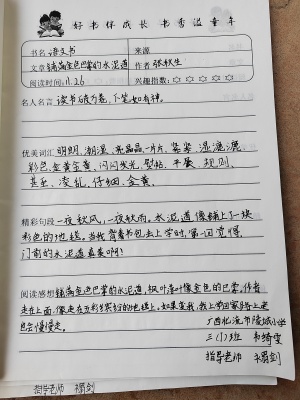 好书伴成长 书香溢童年
书名 语文书 来源
文章 铺满金色巴掌的水泥道 作者 张秋生
阅读时间: 11.26 兴趣指数: ☆ ☆ ☆ ☆ ☆
名人名言 读书破万卷,下笔如有神。
优美词汇 明朗、潮湿、亮晶晶、一片片、紧紧、湿漉漉、
彩色、金黄金黄、闪闪发光、熨帖、平展、规则、
甚至、凌乱、仔细、金黄。
精彩句段 一夜秋风,一夜秋雨,水泥道像铺上了一块
彩色的地毯。当我背着书包去上学时,第一回觉得,
门前的水泥道真美啊!
阅读感想 铺满金色巴掌的水泥道,枫叶落叶像金色的巴掌。作者
走在上面,像走在五彩缤纷的地毯上。如果是我,我上学回家路上走
也会慢慢走。
广西北流市陵城小学
三(1)班 韦绮雯
指导老师 禤剑
指导老师 禤剑